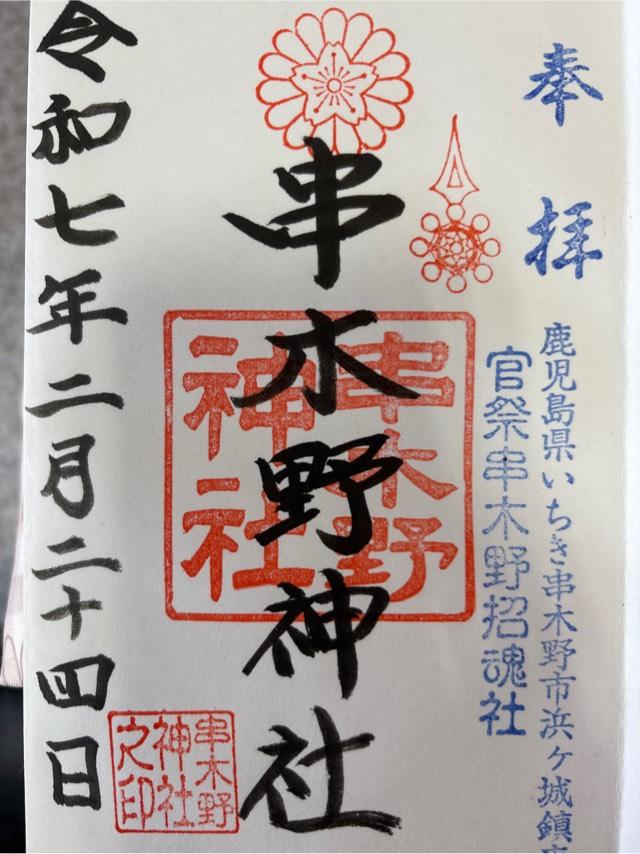 奉拝
鹿児島県いちき串木野市浜ヶ城鎮
官祭串木野招魂社
串木野神社
串木野
神社
串木野
神社
之印
令和七年二月二十四日